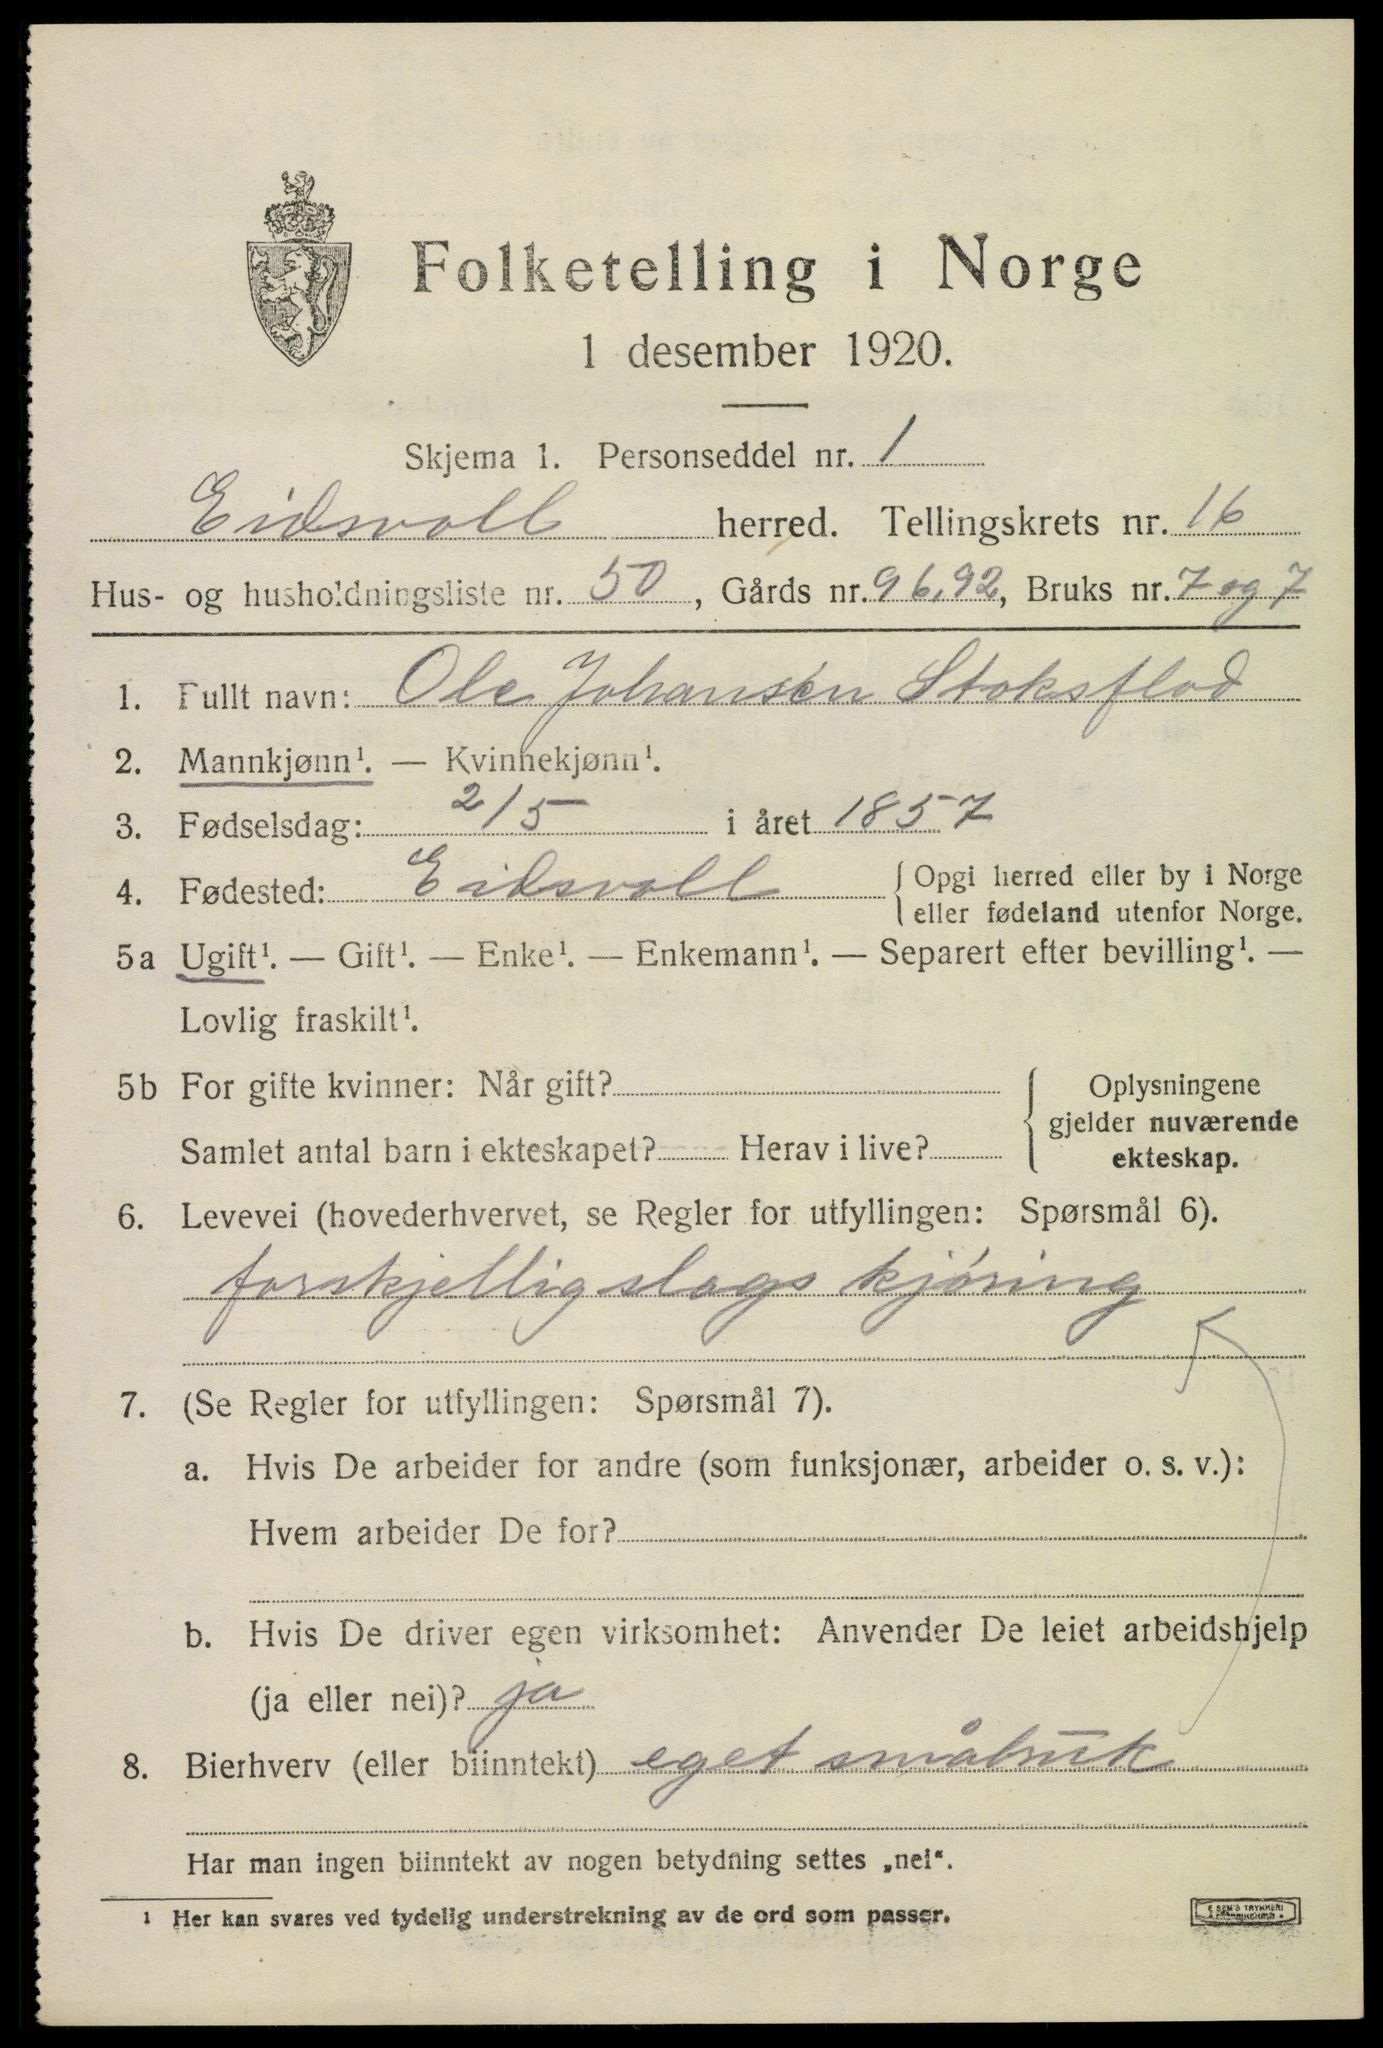 Folketelling i Norge
1 desember 1920.
Skjema 1. Personseddel nr. 1
Eidsvoll herred. Tellingskrets nr. 16
Hus- og husholdningsliste nr. 50, Gårds nr. 96,92, Bruks nr. 7 og 7
1. Fullt navn: Ole Johansen Stoksflod
2. Mannkjønn¹. — Kvinnekjønn¹.
3. Fødselsdag: 2/5 i året 1857
4. Fødested: Eidsvoll { Opgi herred eller by i Norge
eller fødeland utenfor Norge.
5a Ugift¹. — Gift¹. — Enke¹. — Enkemann¹. — Separert efter bevilling¹. —
Lovlig fraskilt¹.
5b For gifte kvinner: Når gift? { Oplysningene
gjelder nuværende
Samlet antal barn i ekteskapet? Herav i live? ekteskap.
6. Levevei (hovederhvervet, se Regler for utfyllingen: Spørsmål 6).
forskjelligslags kjøring
7. (Se Regler for utfyllingen: Spørsmål 7).
a. Hvis De arbeider for andre (som funksjonær, arbeider o. s. v.):
Hvem arbeider De for?
b. Hvis De driver egen virksomhet: Anvender De leiet arbeidshjelp
(ja eller nei)? ja
8. Bierhverv (eller biinntekt) eget småbruk
Har man ingen biinntekt av nogen betydning settes „nei“.
¹ Her kan svares ved tydelig understrekning av de ord som passer.